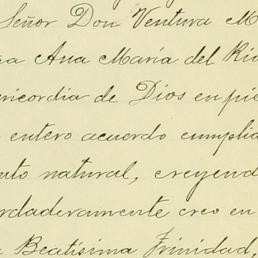 Señor Don Ventura M
a Ana María del Ri
ericordia de Dios en pie
entero acuerdo cumplia
uto natural, creyend
rdaderamente creo en
Beatísima Trinidad,